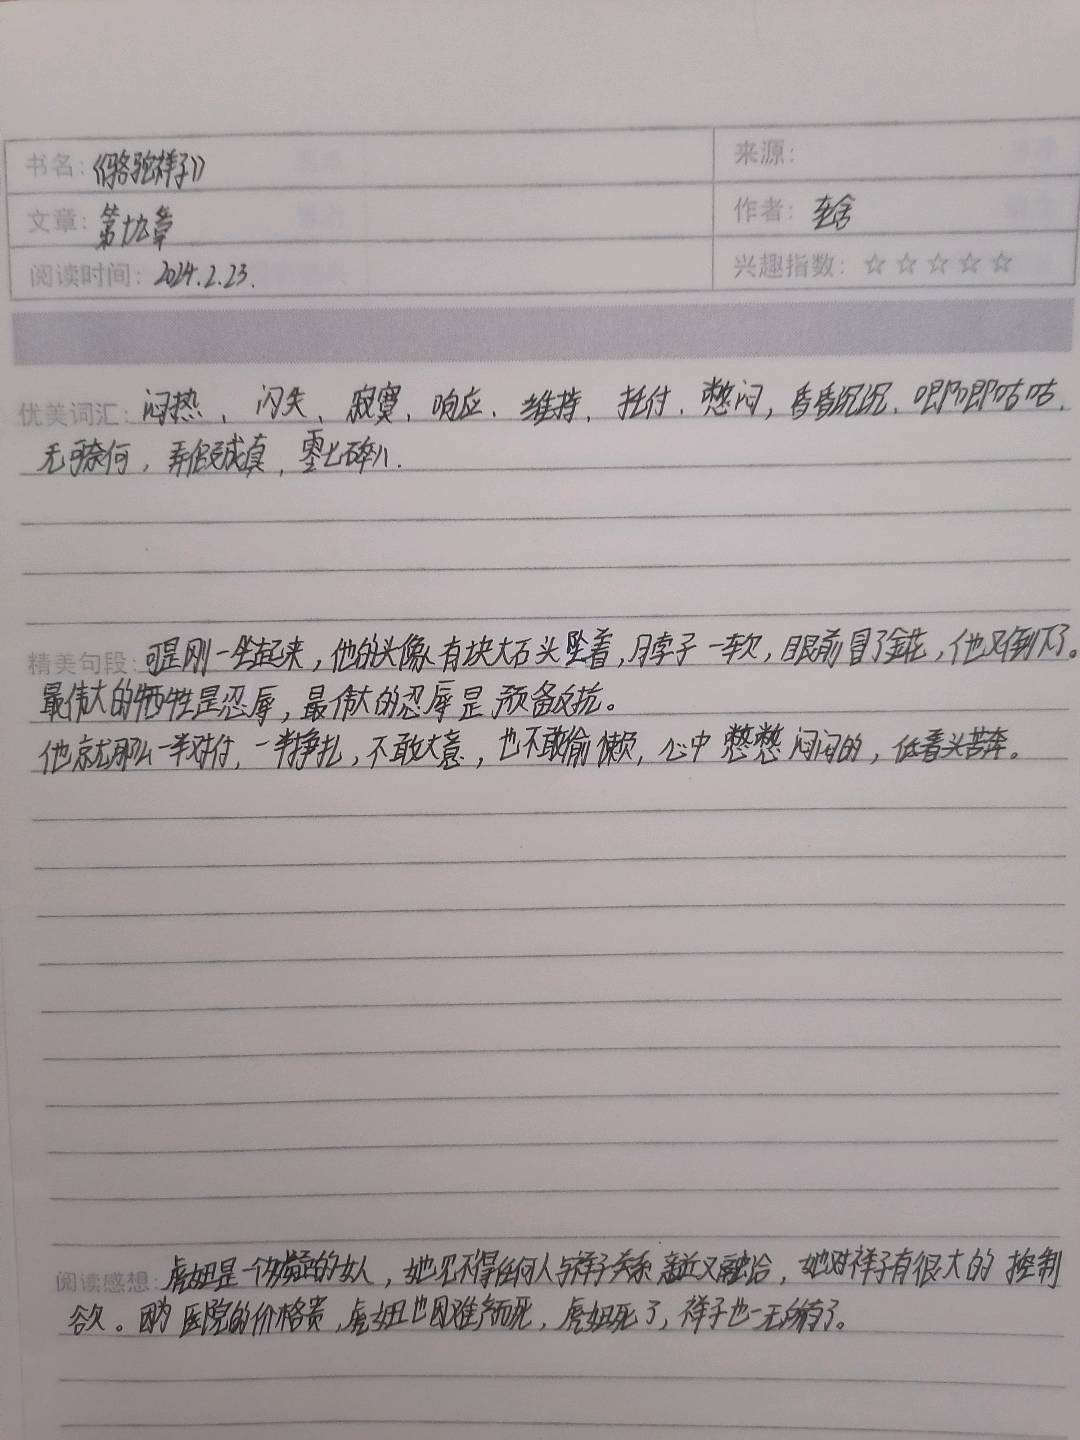 书名:《骆驼祥子》
来源:
文章:第十九章
作者:老舍
阅读时间:2024.2.23.
兴趣指数:☆☆☆☆☆
优美词汇:闷热、闪失、寂寞、响应、维持、托付、憋闷,昏昏沉沉、唧唧咕咕、
无可奈何,弄假成真、零七碎八.
精美句段:可是刚一坐起来,他的头像有块大石头坠着,脖子一软,眼前冒了金花,他又倒下了。
最伟大的牺牲是忍辱,最伟大的忍辱是预备反抗。
他就那么一半对付,一半挣扎,不敢大意,也不敢偷懒,心中憋憋闷闷的,低着头苦奔。
阅读感想:虎妞是一个的女人,她见不得任何人与祥子关系亲近又融洽,她对祥子有很大的控制
欲。因为医院的价格贵,虎妞也因难产而死,虎妞死了,祥子也一无所有了。